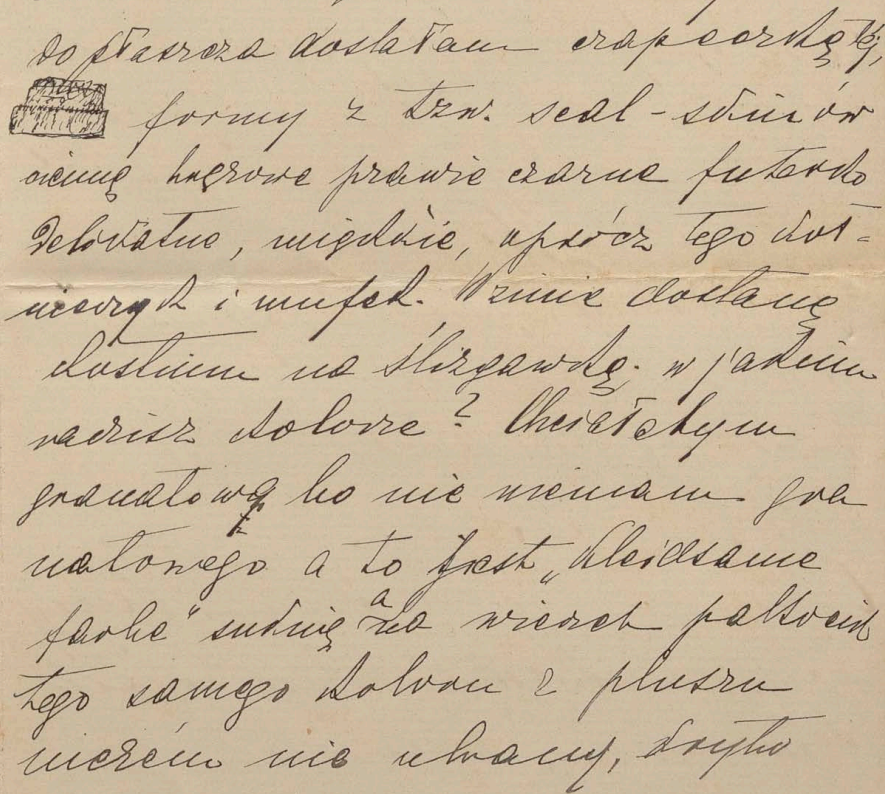 do płaszcza dostałam czapeczkę tej
formy z tzw. seal-skinów
ciemne brązowe prawie czarne futerko
delikatne, miękkie, oprócz tego koł-
nierzyk i mufek. W zimie dostanę
kostium na ślizgawkę. w jakim
radzisz kolorze? Chciałabym
granatową bo nic niemam gra
natowego a to jest „kleidsame
farbe" suknię a na wierzch paltocik
tego samego koloru z pluszu
niczém nie ubrany, tylko